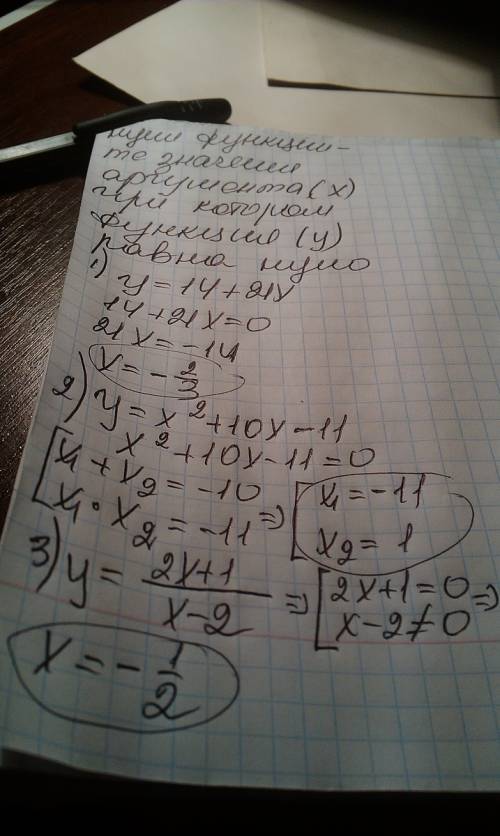 нули функции -
те значения
аргумента (x)
при котором
функция (y)
равна нулю
1) y = 14 + 21x
14 + 21x = 0
21x = -14
x = -2/3
2) y = x² + 10x - 11
x² + 10x - 11 = 0
[x₁ + x₂ = -10
x₁ · x₂ = -11 => [x₁ = -11
x₂ = 1
3) y = (2x+1)/(x-2) => [2x+1 = 0 =>
x-2 ≠ 0
x = -1/2